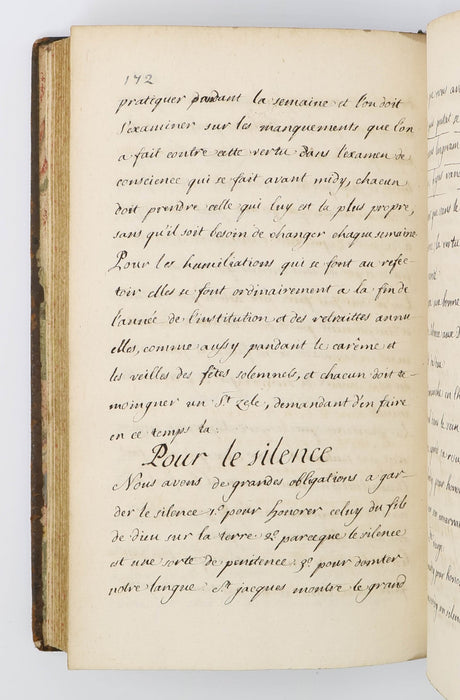 172
pratequer pandant la semaine et l'on doit
s'examiner sur les manquements que l'on
a fait contre cette vertu dans l'examen de
conscience qui se fait avant midy, chacun
doit prendre celle qui luy est la plus propre,
sans qu'il soit besoin de changer chaque semaine.
Pour les humiliations qui se font au refec
toir elles se font ordinairement a la fin de
l'année de l'institution et des retraittes annu
elles, comme aussy pandant le carême et
les veilles des fêtes solemnels, et chacun doit te-
moingner un St. zele, demandant d'en faire
en ce temps la.
Pour le silence
Nous avons de grandes obligations a gar-
der le silence 1º. pour honorer celuy du fils
de dieu sur la terre 2º. parceque le silence
est une sorte de penitence: 3º. pour domter
notre langue: St. jacques montre le grand